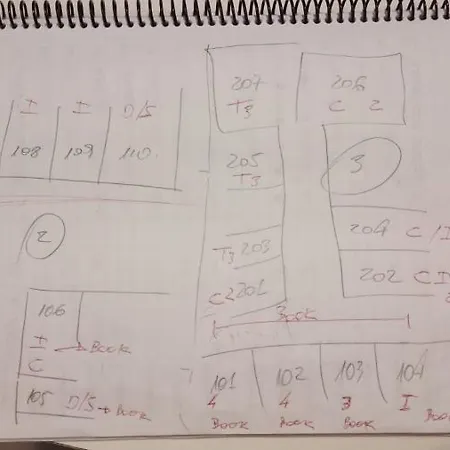 207
T3
206
C 2
I I D/S
108 109 110
205
T3
3
2
T3 203
204 C/I
C2 201
202 CI
106
I
C → Book
Book
105 D/S + Book
101 102 103 104
4 4 3 I
Book Book Book Book